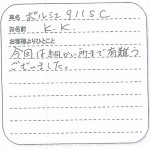 車名 ポルシェ911SC
お名前 K.K.
お客様よりひとこと
今回は細かい所まで有難う
ございました。